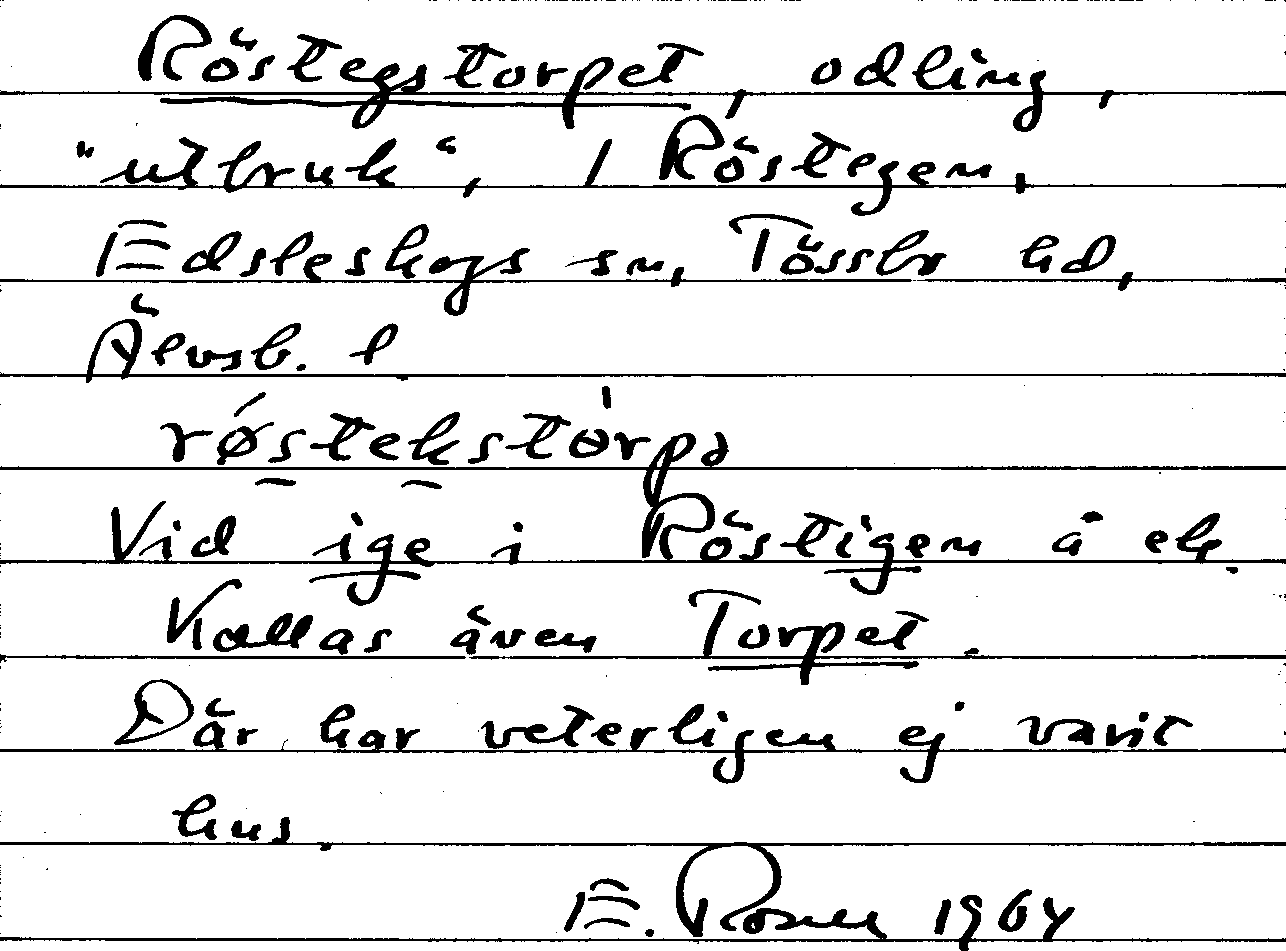 Röstegstorpet, odling,
"utbruk", i Röstegen,
Edsleskogs sn, Tössbo hd,
Älvsb. l.
røstekstòrpə
Vid ige i Röstigen å ek.
Kallas även Torpet.
Där har veterligen ej varit
hus.
E. 1964